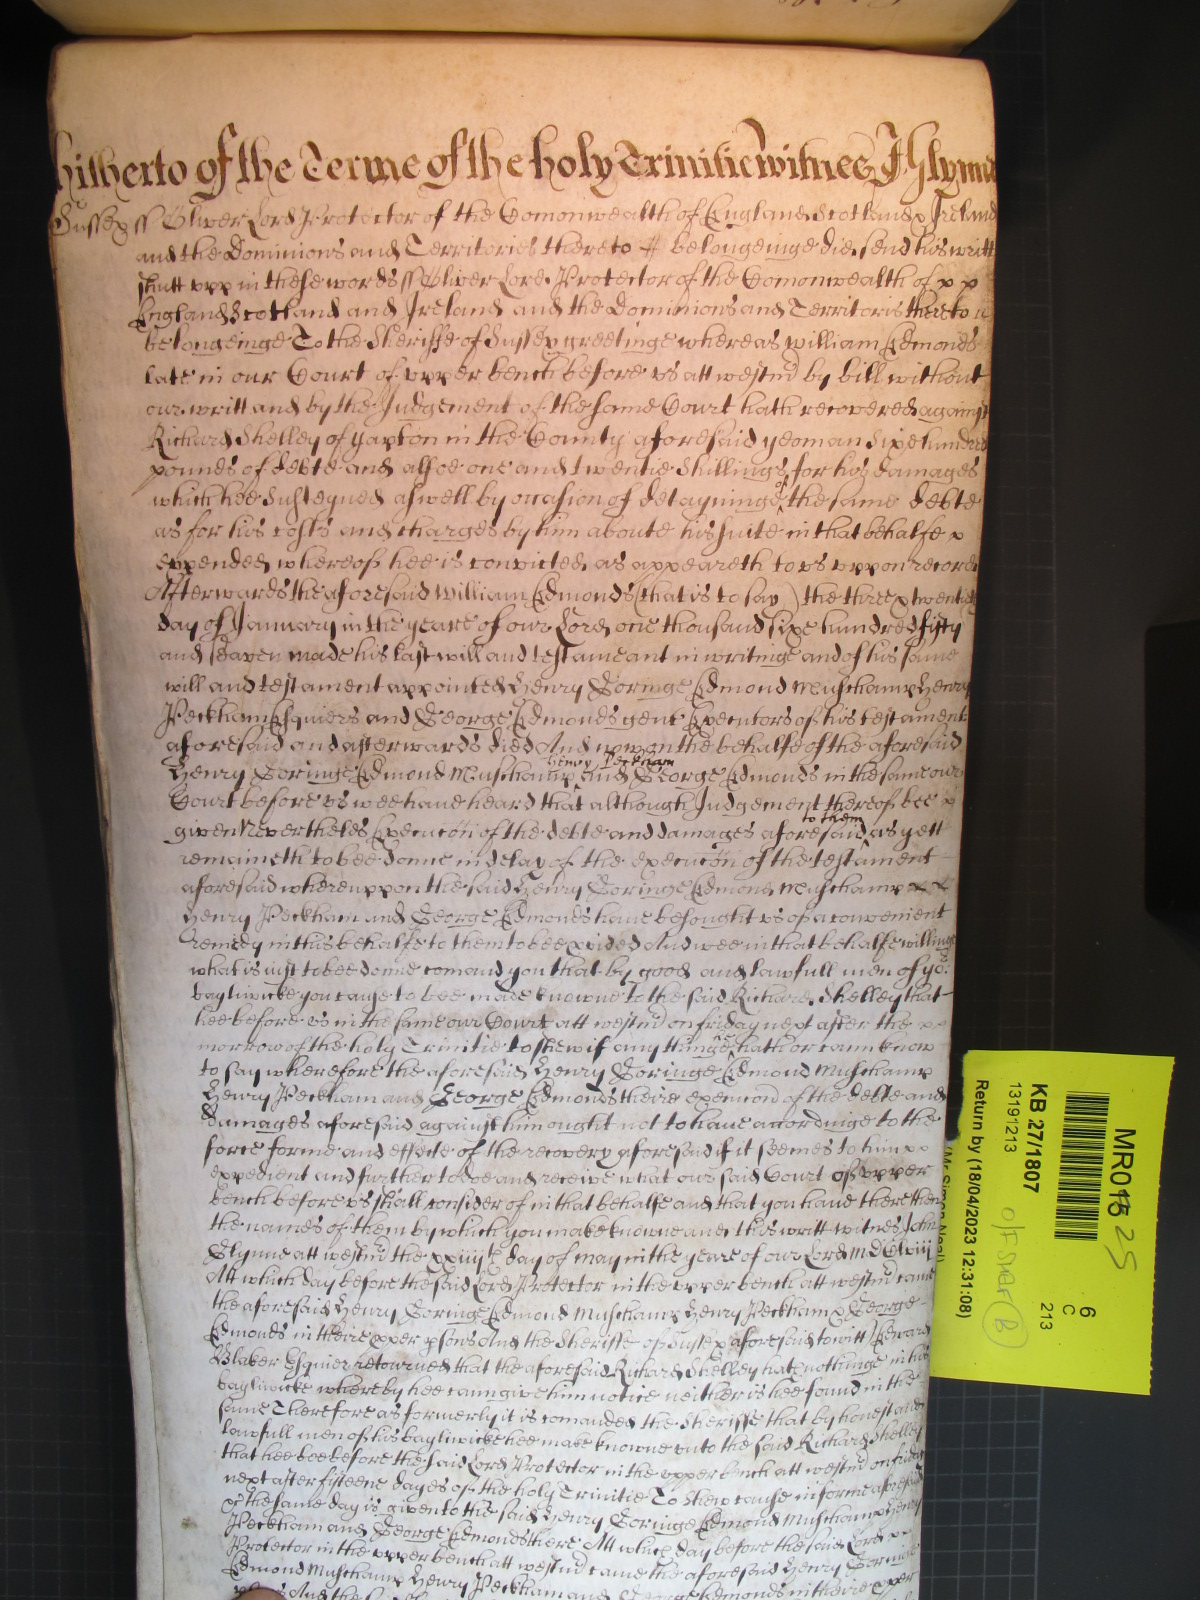 hitherto of the Terme of the holy Trinitie witnes J Glynne
Sussex ss Oliver Lord Protector of the Comonwealth of England Scotland & Ireland
and the Dominions and Territories thereto belongeinge did send his writt
shutt upp in these words ss Oliver Lord Protector of the Comonwealth of
England Scotland and Ireland and the Dominions and Territoris thereto
belongeinge To the Sheriffe of Sussex greetinge whereas william Edmonds
late in our Court of upper bench before us att westmr by bill without
our writt and by the Judgement of the same Court hath recovered against
Richard Shelley of yapton in the County aforesaid yeoman Sixe hundred
pounds of debte and alsoe one and twentie shillings for his damages
which hee susteyned aswell by occasion of detayninge of the same debte
as for his costs and charges by him aboute his suite in that behalfe
expended whereof hee is convicted as appeareth to us uppon record
Afterwards the aforesaid William Edmonds (that is to say) the three & twentieth
day of January in the yeare of our Lord one thousand sixe hundred fifty
and seaven made his last will and testameant in writinge and of his same
will and testament appointed Henry Goringe Edmond Muschamp Henry
Peckham Esquiers and George Edmonds gent Executors of his testament
aforesaid and afterwards died And uppon the behalfe of the aforesaid
Henry Goringe Edmond Muschamp Henry Peckham and George Edmonds in the same our
Court before us wee have heard that although Judgement thereof bee
given Nevertheles Execucion of the debte and damages aforesaid to them as yett
remaineth to bee donne in delay of the execucion of the testament
aforesaid whereuppon the said Henry Goringe Edmond Muschamp
Henry Peckham and George Edmonds have besought us of a convenient
remedy in this behalfe to them to bee pvided And wee in that behalfe willinge
what is just to bee donne comand you that by good and lawfull men of yor
bayliwicke you cause to bee made knowne to the said Richard Shelley that
hee before us in the same our Court att westmr on friday next after the
morrow of the holy Trinitie to shew if any thinge hee hath or cann know
to say wherefore the aforesaid Henry Goringe Edmond Muschamp
Henry Peckham and George Edmonds theire execucon of the debte and
damages aforesaid against him ought not to have accordinge to the
force forme and effecte of the recovery aforesaid if it seemes to him
expedient and further to doe and receive what our said Court of upper
bench before us shall consider of in that behalfe and that you have there then
the names of them by which you make knowne and this writt witnes John
Glynne att westmr the xxiiijth day of may in the yeare of our Lord MDClviij
Att which day before the said Lord Protector in the upper bench att westmr came
the aforesaid Henry Goringe Edmond Muschamp Henry Peckham & George
Edmonds in theire pper psons And the Sheriffe of Sussex aforesaid towitt Edward
Blaker Esquier retourned that the aforesaid Richard Shelley hath nothinge in his
bayliwicke whereby hee cann give him notice neither is hee found in the
same Therefore as formerly it is comanded the Sheriffe that by honest and
lawfull men of his bayliwicke hee make knowne unto the said Richard Shelley
that hee bee before the said Lord Protector in the upper bench att westmr on friday
next after fifteene dayes of the holy Trinitie To shew cause in forme aforesaid
& the same day is given to the said Henry Goringe Edmond Muschamp Henry
Peckham and George Edmonds there Att which day before the said Lord
Protector in the upper bench att westmr came the aforesaid Henry Goringe
Edmond Muschamp Henry Peckham and George Edmonds in theire pper
psons And the
MR015 25
6
C
213
KB 27/1807
13191213
Return by (18/04/2023 12:31:08)
(Mr Simon Neal)